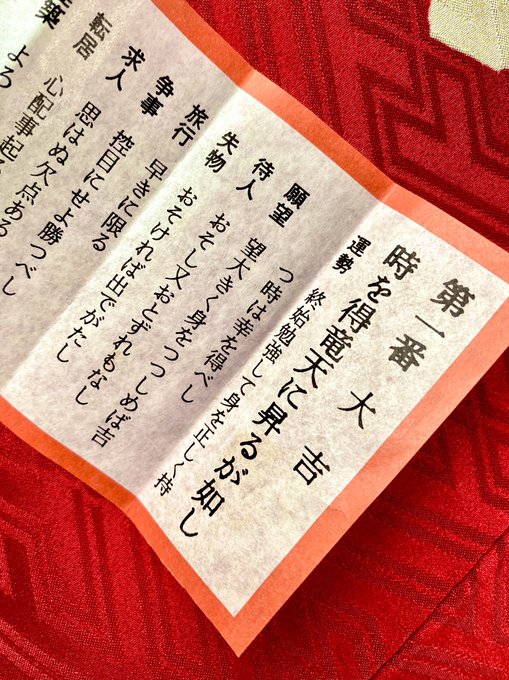 第一番 大吉
時を得竜天に昇るが如し
運勢 終始勉強して身を正しく持
つ時は幸を得べし
願望 望大きく身をつつしめば吉
待人 おそし又おとずれもなし
失物 おそければ出でがたし
旅行 早きに限る
争事 控目にせよ勝つべし
求人 思はぬ欠点ある
転居 心配事起る
築 よろ